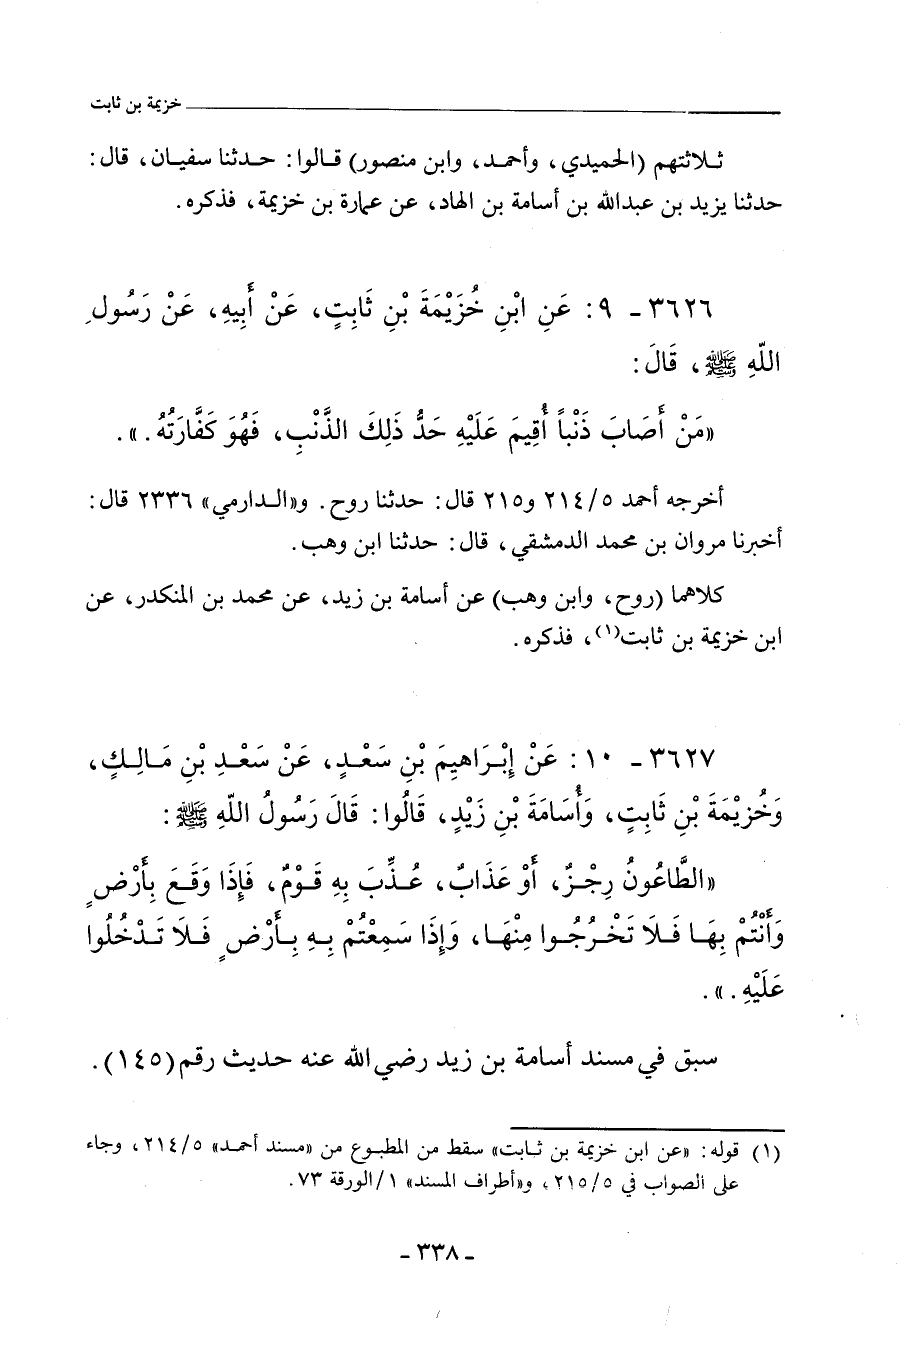 خزيمة بن ثابت
ثلاثتهم (الحميدي، وأحمد، وابن منصور) قالوا: حدثنا سفيان، قال:
حدثنا يزيد بن عبدالله بن أسامة بن الهاد، عن عمارة بن خزيمة، فذكره.
٣٦٢٦ - ٩: عَنِ ابْنِ خُزَيْمَةَ بْنِ ثَابِتٍ، عَنْ أَبِيهِ، عَنْ رَسُولِ
اللَّهِ ﷺ، قَالَ:
«مَنْ أَصَابَ ذَنْباً أُقِيمَ عَلَيْهِ حَدُّ ذَلِكَ الذَّنْبِ، فَهُوَ كَفَّارَتُهُ.».
أخرجه أحمد ٥/٢١٤ و٢١٥ قال: حدثنا روح. و«الدارمي» ٢٣٣٦ قال:
أخبرنا مروان بن محمد الدمشقي، قال: حدثنا ابن وهب.
كلاهما (روح، وابن وهب) عن أسامة بن زيد، عن محمد بن المنكدر، عن
ابن خزيمة بن ثابت(١)، فذكره.
٣٦٢٧ - ١٠: عَنْ إِبْرَاهِيمَ بْنِ سَعْدٍ، عَنْ سَعْدِ بْنِ مَالِكٍ،
وَخُزَيْمَةَ بْنِ ثَابِتٍ، وَأُسَامَةَ بْنِ زَيْدٍ، قَالُوا: قَالَ رَسُولُ اللَّهِ ﷺ:
«الطَّاعُونُ رِجْزٌ، أَوْ عَذَابٌ، عُذِّبَ بِهِ قَوْمٌ، فَإِذَا وَقَعَ بِأَرْضٍ
وَأَنْتُمْ بِهَا فَلَا تَخْرُجُوا مِنْهَا، وَإِذَا سَمِعْتُمْ بِهِ بِأَرْضٍ فَلَا تَدْخُلُوا
عَلَيْهِ.».
سبق في مسند أسامة بن زيد رضي الله عنه حديث رقم (١٤٥).
(١) قوله: «عن ابن خزيمة بن ثابت» سقط من المطبوع من «مسند أحمد» ٥/٢١٤، وجاء
على الصواب في ٥/٢١٥، و«أطراف المسند» ١/الورقة ٧٣.
- ٣٣٨ -